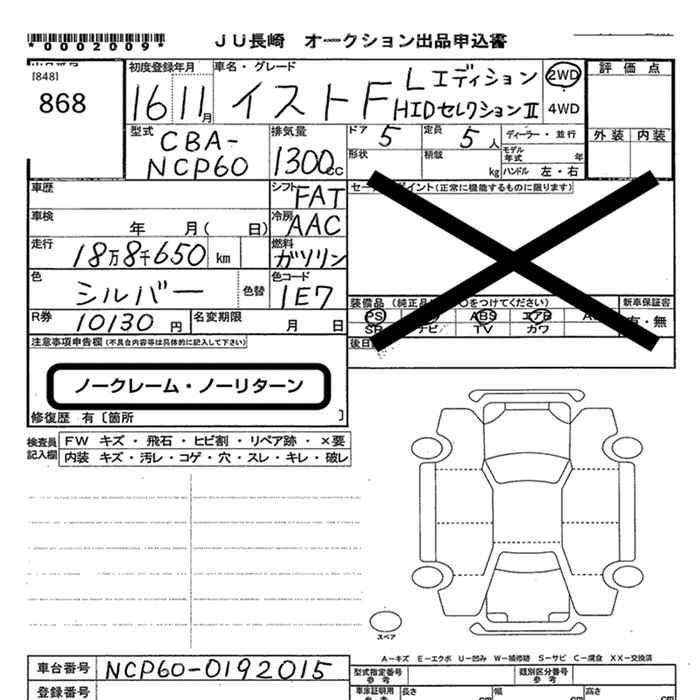 *0002009*
JU長崎 オークション出品申込書
[848]
868
初度登録年月
16 11月
車名・グレード
イストF Lエディション
HIDセレクションⅡ
2WD
4WD
評価点
外装 内装
型式
CBA-
NCP60
排気量
1300cc
ドア 5
定員 5人
ディーラー・並行
形状
積載 kg
モデル年式 年
ハンドル 左・右
車歴
シフト FAT
車検 年 月( 日)
冷房 AAC
走行 18万8千650 km
燃料 ガソリン
色 シルバー
色替
色コード 1E7
R券 10130円
名変期限 月 日
注意事項申告欄(不具合内容等は具体的に記入して下さい)
ノークレーム・ノーリターン
修復歴 有〔箇所 〕
イント(正常に機能するものに限ります)
装備品(純正品 ○をつけてください)
新車保証書
PS ABS エアB
ナビ TV カワ
有・無
検査員記入欄
FW キズ・飛石・ヒビ割・リペア跡・×要
内装 キズ・汚レ・コゲ・穴・スレ・キレ・破レ
スペア
A-キズ E-エクボ U-凹み W-補修跡 S-サビ C-腐食 XX-交換済
車台番号 NCP60-0192015
登録番号
型式指定番号 参考
類別区分番号 参考
車庫証明用 参考
長さ cm
幅 cm
高さ cm